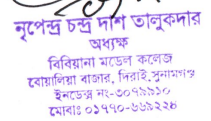 নৃপেন্দ্র চন্দ্র দাশ তালুকদার
অধ্যক্ষ
বিবিয়ানা মডেল কলেজ
বোয়ালিয়া বাজার, দিরাই, সুনামগঞ্জ
ইনডেক্স নং-৩০৭৯৯১০
মোবাঃ ০১৭৭০-৬৬৯২২৪